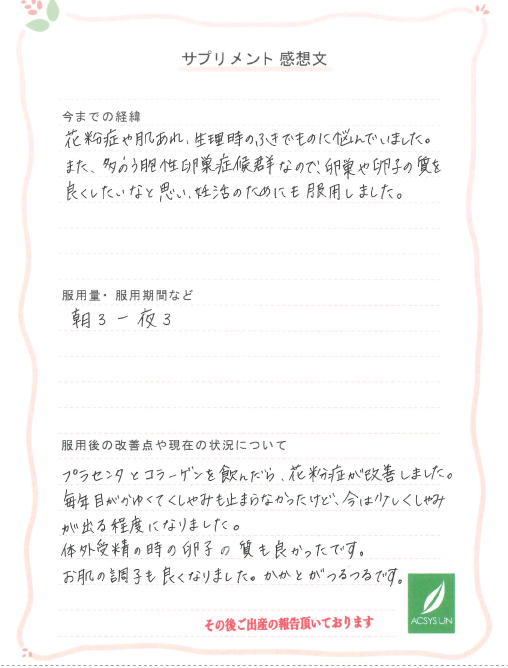 サプリメント 感想文
今までの経緯
花粉症や肌あれ、生理時のふきでものに悩んでいました。
また、多のう胞性卵巣症候群なので、卵巣や卵子の質を
良くしたいなと思い、妊活のためにも服用しました。
服用量・服用期間など
朝3 ー 夜3
服用後の改善点や現在の状況について
プラセンタとコラーゲンを飲んだら、花粉症が改善しました。
毎年目がかゆくてくしゃみも止まらなかったけど、今は少しくしゃみ
が出る程度になりました。
体外受精の時の卵子の質も良かったです。
お肌の調子も良くなりました。かかとがつるつるです。
その後ご出産の報告頂いております
ACSYSUN